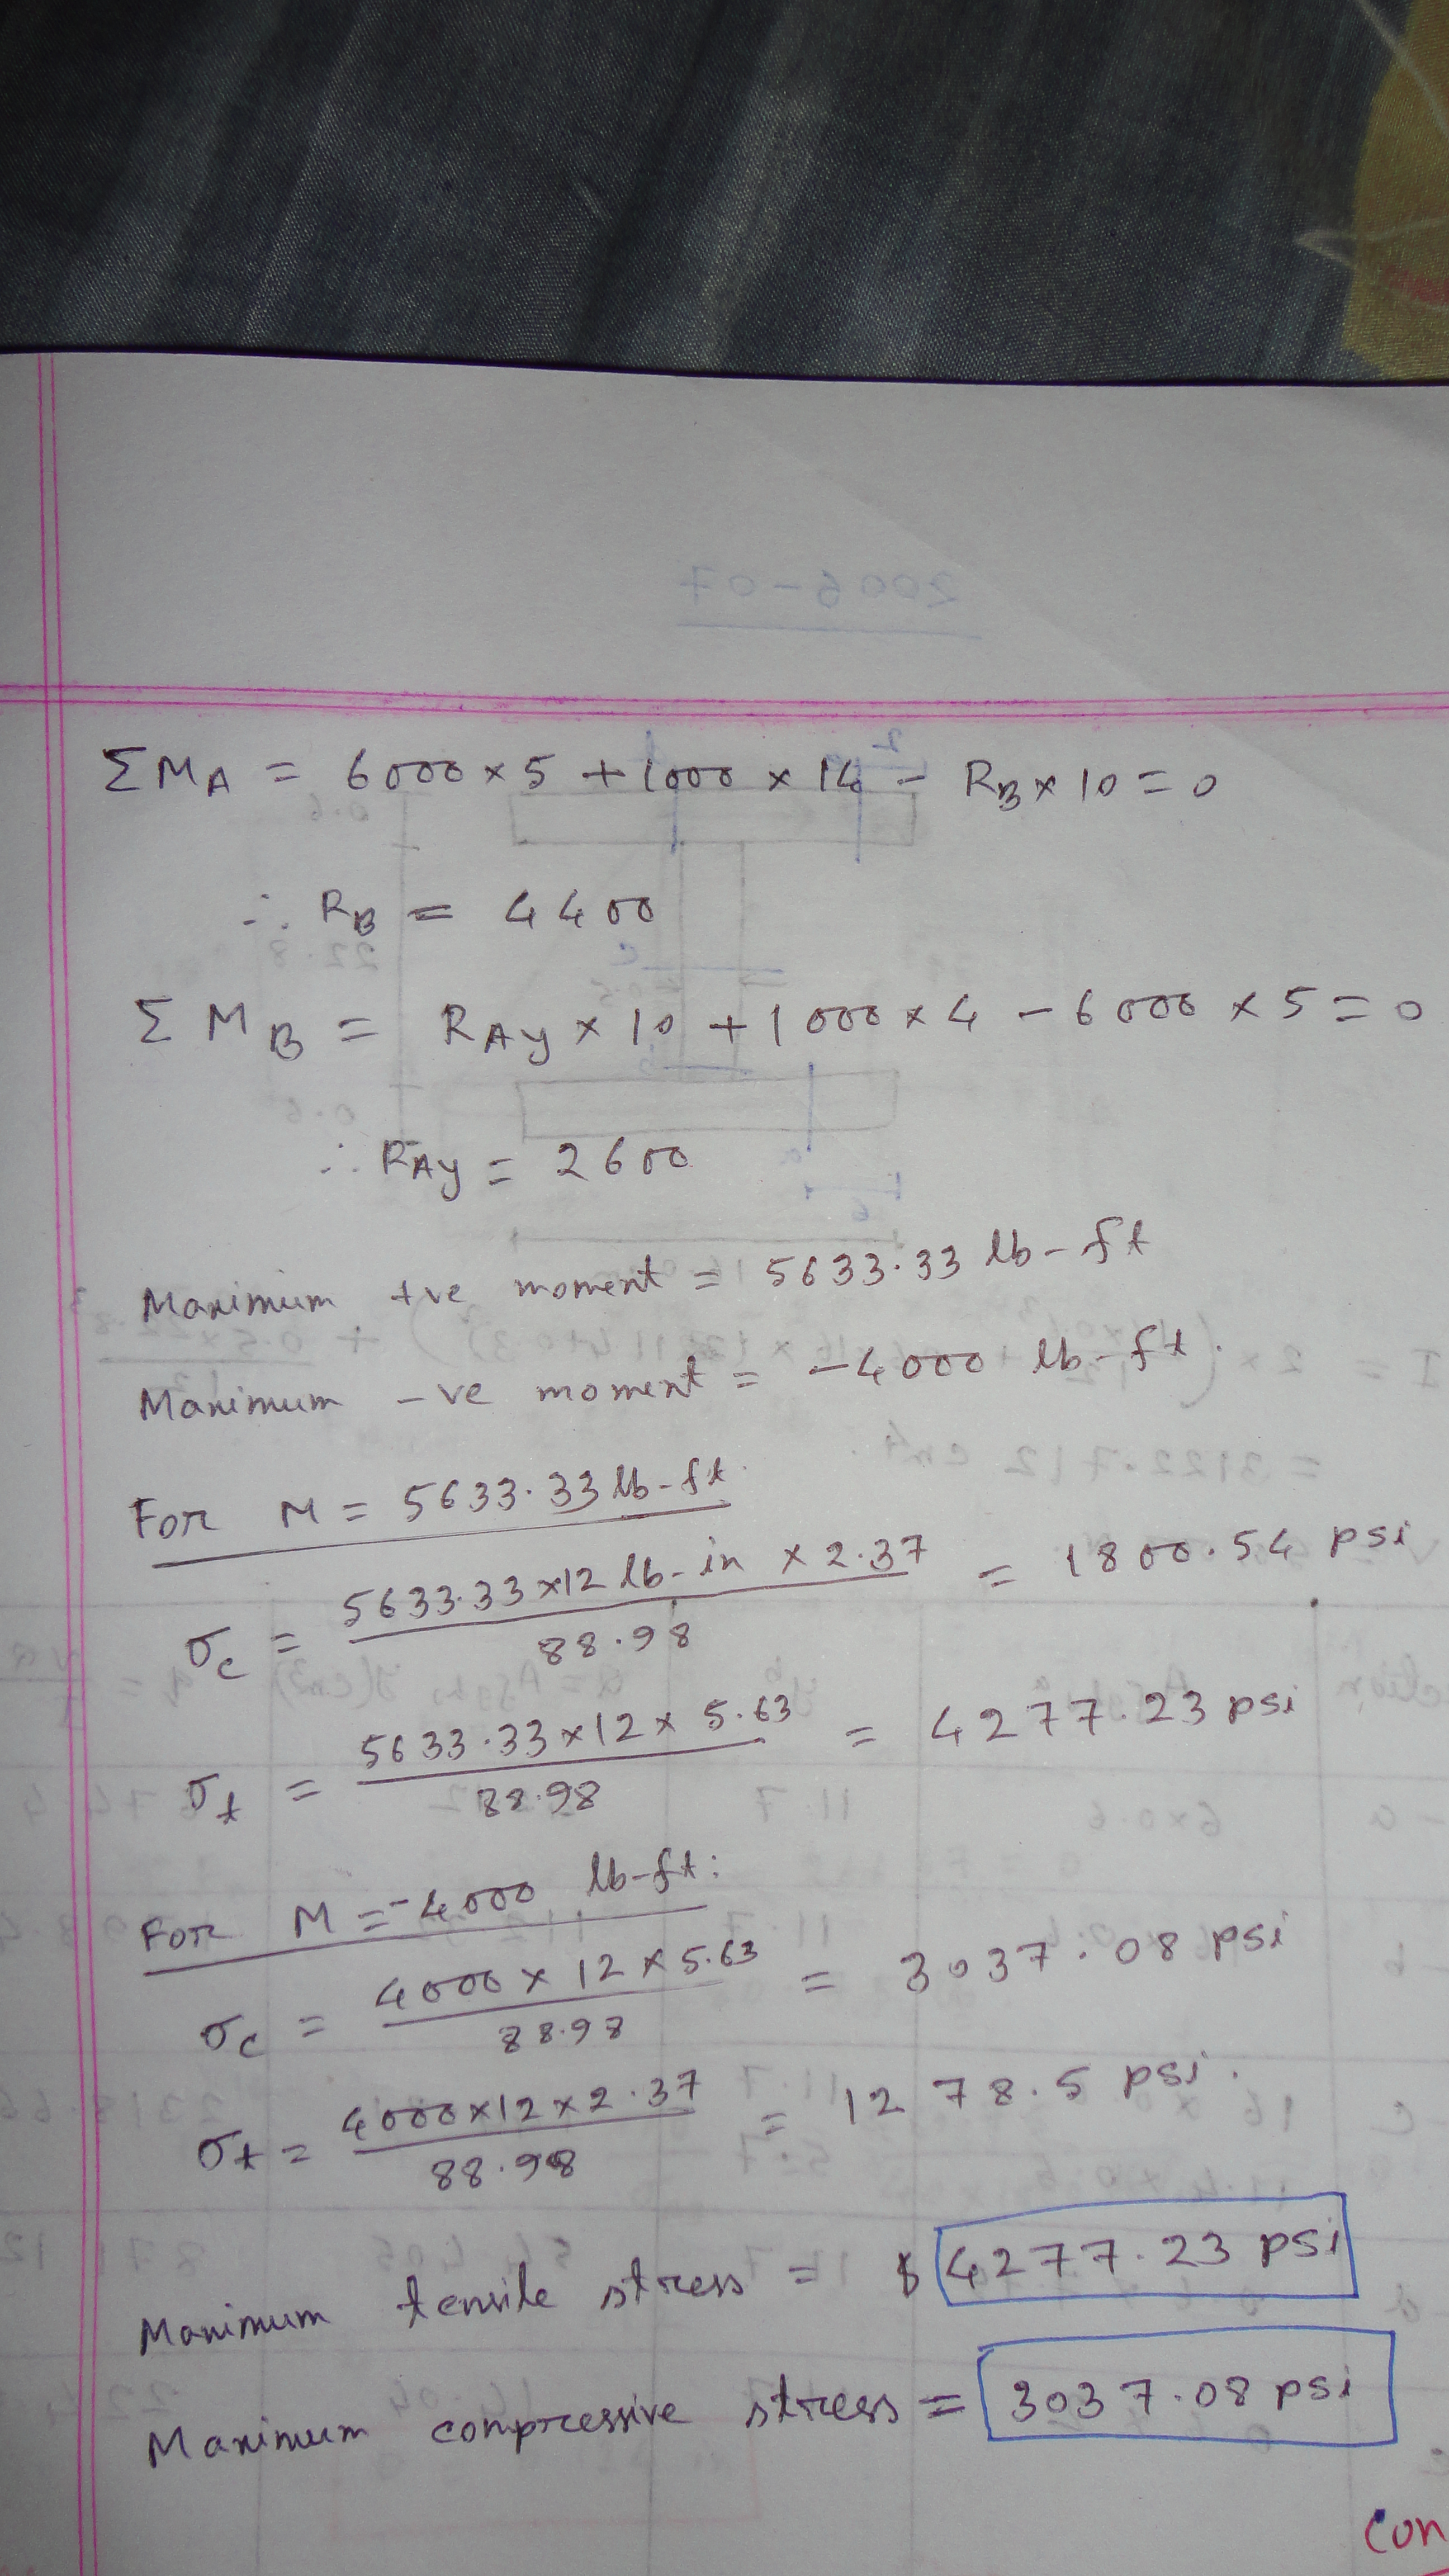 2006-07
ΣM_A = 6000 × 5 + 1000 × 14 - R_B × 10 = 0
∴ R_B = 4400
Σ M_B = R_Ay × 10 + 1000 × 4 - 6000 × 5 = 0
∴ R_Ay = 2600
Maximum +ve moment = 5633.33 lb-ft
Maximum -ve moment = -4000 lb-ft.
For M = 5633.33 lb-ft.
σ_c = 5633.33×12 lb-in × 2.37 / 88.98 = 1800.54 psi
σ_t = 5633.33×12× 5.63 / 88.98 = 4277.23 psi
For M = -4000 lb-ft:
σ_c = 4000 × 12 × 5.63 / 88.98 = 3037.08 psi
σ_t = 4000×12×2.37 / 88.98 = 1278.5 psi.
Maximum tensile stress = 4277.23 psi
Maximum compressive stress = 3037.08 psi
Con